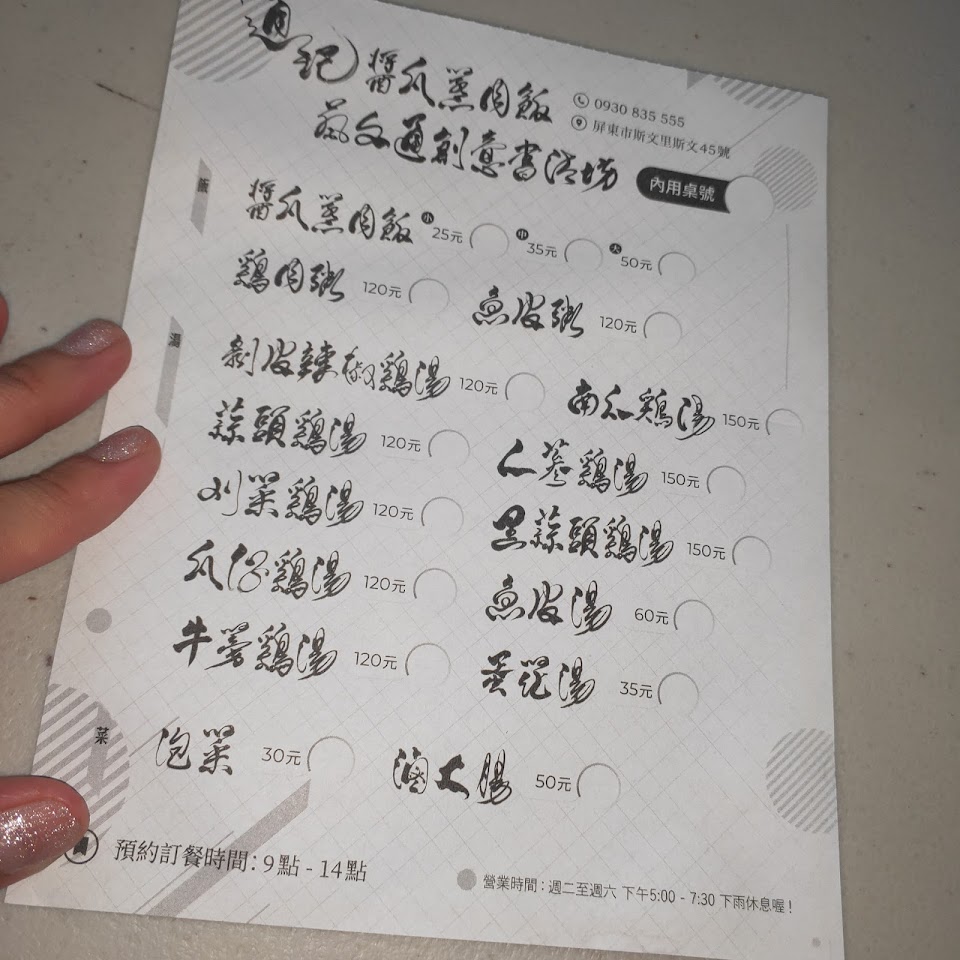 週記醬瓜蒸肉飯
0930 835 555
屏東市斯文里斯文45號
藝文通創意書法坊
內用桌號
飯
醬瓜蒸肉飯 小 25元 中 35元 大 50元
鷄肉粥 120元 魚皮粥 120元
湯
剝皮辣椒鷄湯 120元 南瓜鷄湯 150元
蒜頭鷄湯 120元 人蔘鷄湯 150元
刈菜鷄湯 120元 黑蒜頭鷄湯 150元
瓜仔鷄湯 120元 魚皮湯 60元
牛蒡鷄湯 120元 35元
菜
泡菜 30元 滷大腸 50元
預約訂餐時間:9點 - 14點
營業時間:週二至週六 下午5:00 - 7:30 下雨休息喔!